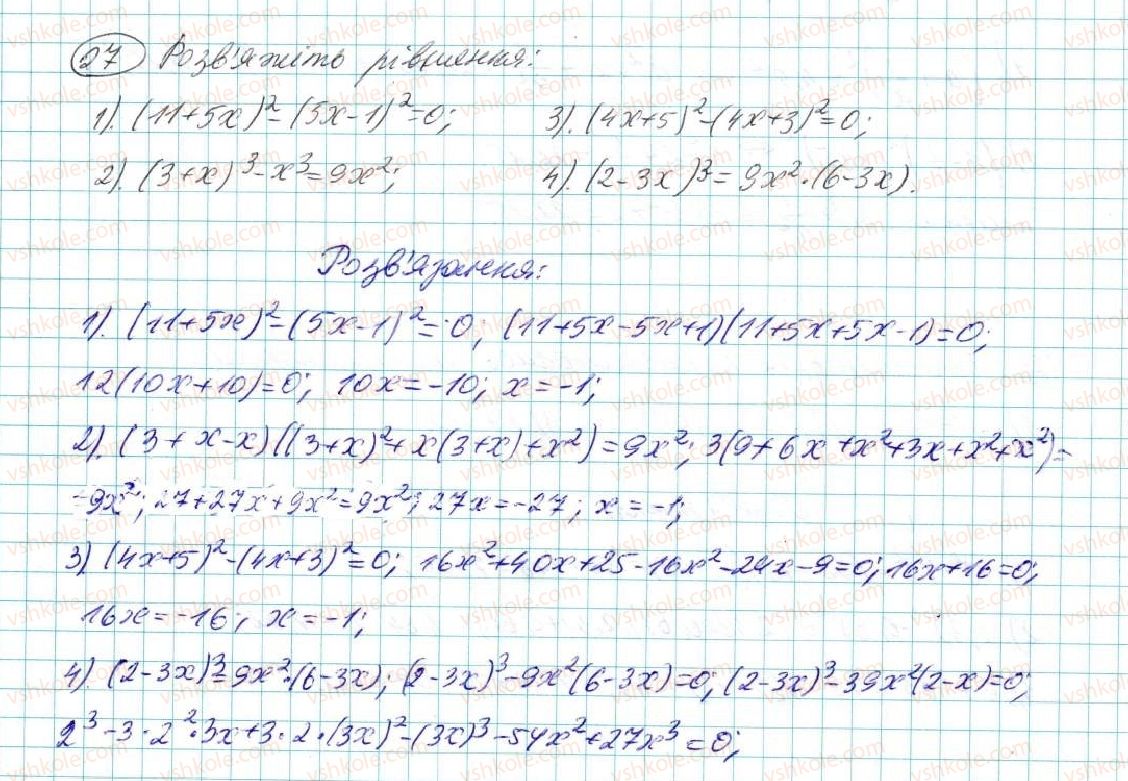 27 Розв'яжіть рівняння:
1). (11+5x)²-(5x-1)²=0; 3). (4x+5)²-(4x+3)²=0;
2). (3+x)³-x³=9x²; 4). (2-3x)³=9x²·(6-3x).
Розв'язання:
1). (11+5x)²-(5x-1)²=0; (11+5x-5x+1)(11+5x+5x-1)=0;
12(10x+10)=0; 10x=-10; x=-1;
2). (3+x-x)((3+x)²+x(3+x)+x²)=9x²; 3(9+6x+x²+3x+x²+x²)=
=9x²; 27+27x+9x²=9x²; 27x=-27; x=-1;
3) (4x+5)²-(4x+3)²=0; 16x²+40x+25-16x²-24x-9=0; 16x+16=0;
16x=-16; x=-1;
4). (2-3x)³=9x²·(6-3x); (2-3x)³-9x²(6-3x)=0; (2-3x)³-39x²(2-x)=0;
2³-3·2²·3x+3·2·(3x)²-(3x)³-54x²+27x³=0;